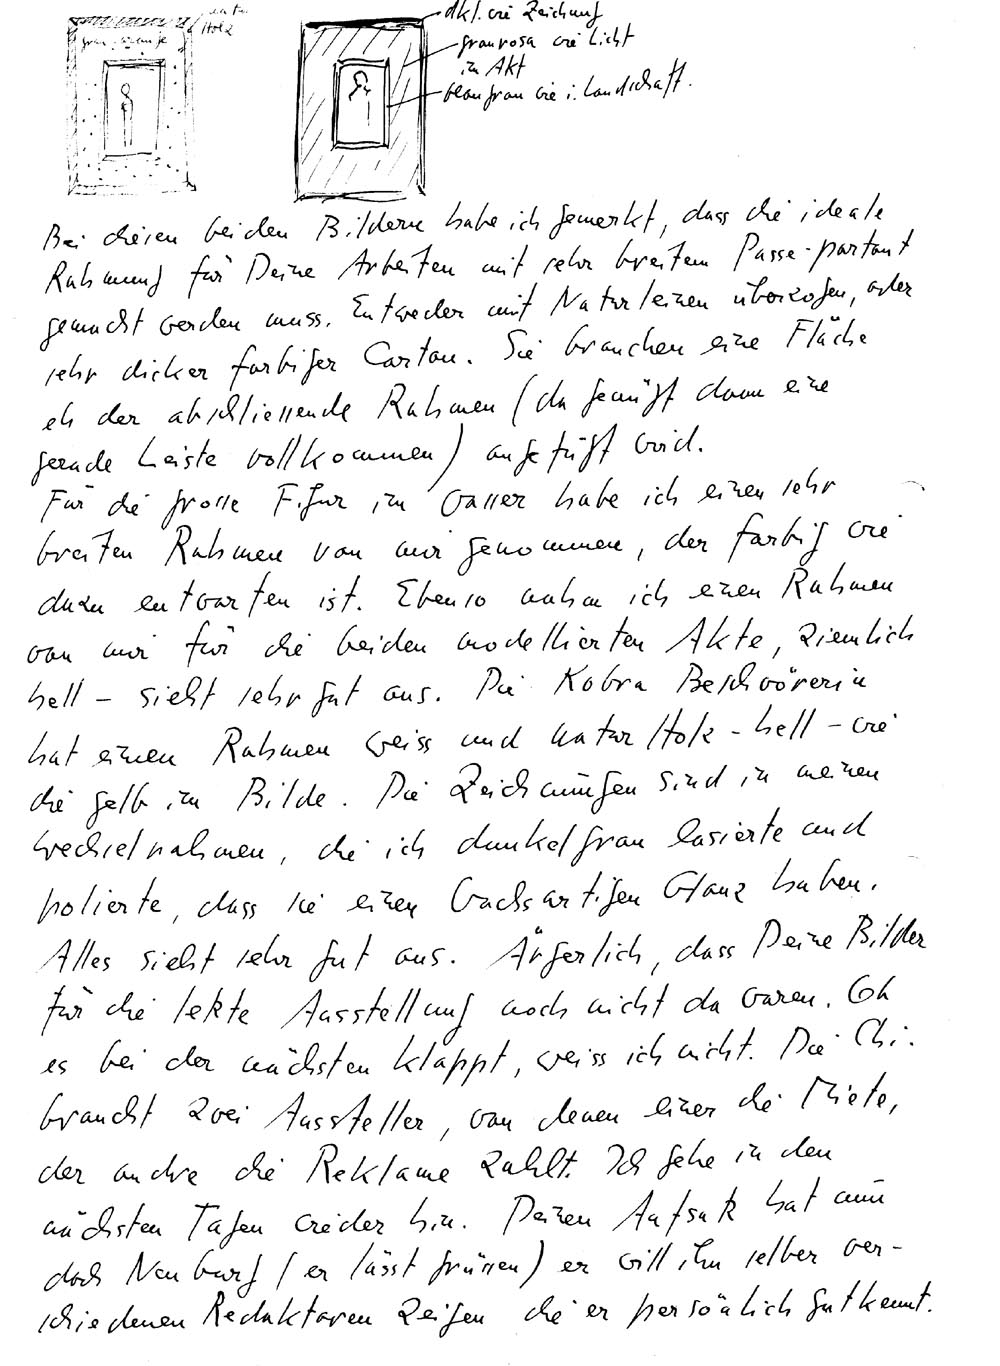 natur
Holz
grau-orange
dkl. wie Zeichung
graurosa wie Licht
in Akt
blaugrau wie i. Landschaft.
Bei diesen beiden Bildern habe ich gemerkt, dass die ideale
Rahmung für Deine Arbeiten mit sehr breitem Passe-partout
gemacht werden muss. Entweder mit Naturleinen überzogen, oder
sehr dicker farbiger Carton. Sie brauchen eine Fläche
eh der abschliessende Rahmen (da genügt dann eine
gerade Leiste vollkommen) angefügt wird.
Für die grosse Figur im Wasser habe ich einen sehr
breiten Rahmen von mir genommen, der farbig wie
dazu entworfen ist. Ebenso nahm ich einen Rahmen
von mir für die beiden modellierten Akte, ziemlich
hell – sieht sehr gut aus. Die Kobra Beschwörerin
hat einen Rahmen weiss und natur Holz – hell – wie
die gelb im Bilde. Die Zeichnungen sind in meinen
Wechselrahmen, die ich dunkelgrau lasierte und
polierte, dass sie einen wachsartigen Glanz haben.
Alles sieht sehr gut aus. Ärgerlich, dass Deine Bilder
für die letzte Ausstellung noch nicht da waren. Ob
es bei der nächsten klappt, weiss ich nicht. Die Chi.
braucht zwei Aussteller, von denen einer die Miete,
der andre die Reklame zahlt. Ich gehe in den
nächsten Tagen wieder hin. Deinen Aufsatz hat nun
doch Neuburg (er lässt grüssen) er will ihn selber ver-
schiedenen Redaktoren zeigen die er persönlich gut kennt.